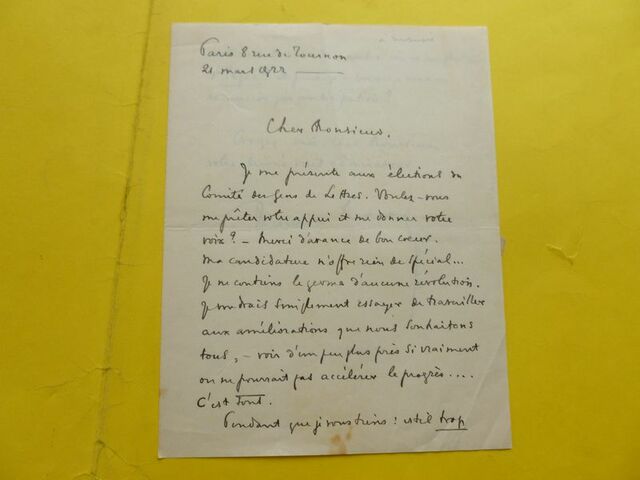 Paris 8 rue de Tournon
21 mars 1922
Cher Monsieur.
Je me présente aux élections du
Comité des Gens de Lettres. Voulez-vous
me prêter votre appui et me donner votre
voix? – Merci d'avance de bon coeur.
Ma candidature n'offre rien de spécial...
Je ne contiens le germe d'aucune révolution.
Je voudrais simplement essayer de travailler
aux améliorations que nous souhaitons
tous, – voir d'un peu plus près si vraiment
on ne pourrait pas accélérer le progrès....
C'est tout.
Pendant que je vous tiens : est-il trop